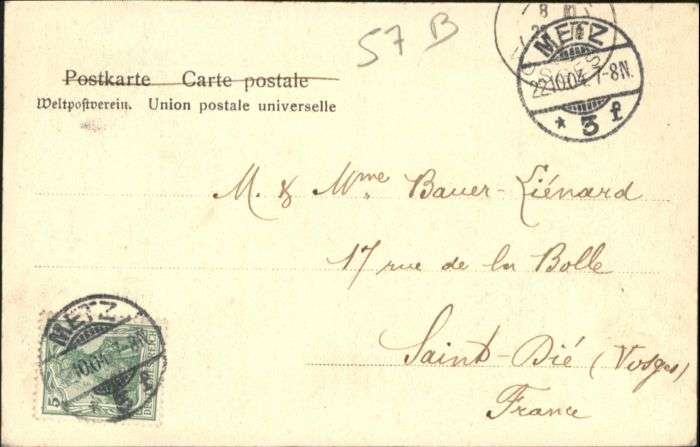 57 B
Postkarte Carte postale
Weltpostverein. Union postale universelle
METZ
22.10.04. 7-8N.
* 3 f
M. & Mme Bauer-Liénard
17 rue de la Bolle
Saint-Dié (Vosges)
France
METZ
5